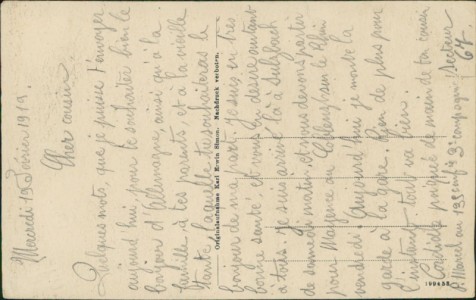 Mercredi 19 Février 1919.
Cher cousin
Quelques mots, que je puisse t'envoyer
aujourd'hui, pour te souhaiter bien le
bonjour d'Allemagne, ainsi qu'à la
famille, à tes parents, et à la vieille
tante, laquelle tu souhaiteras le
bonjour de ma part. Je suis en très
bonne santé et vous en désire autant
à tous. Je suis arrivé à Sulzbach
de samedi matin, et nous devons partir
pour Mayence ou Coblenz sur le Rhin
vendredi. Aujourd'hui je monte la
garde à la gare. Rien de plus pour
l'instant, tout va bien.
Cordiale poignée de main de ton cousin
Marcel au 135 inf 3e compagnie Secteur
64
Originalaufnahme Karl Erwin Simon. Nachdruck verboten.